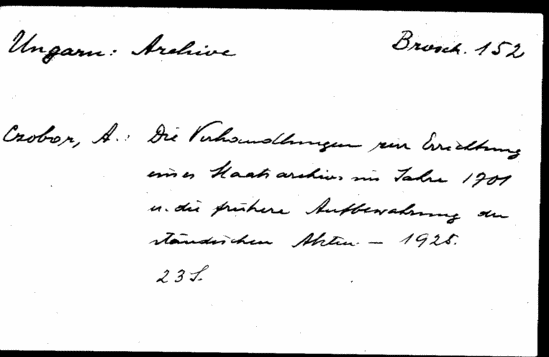 Ungarn: Archive
Brosch. 152
Czobor, A.: Die Verhandlungen zur Errichtung
eines Staatsarchivs im Jahre 1701
u. die frühere Aufbewahrung der
ständischen Akten. – 1925.
23 S.